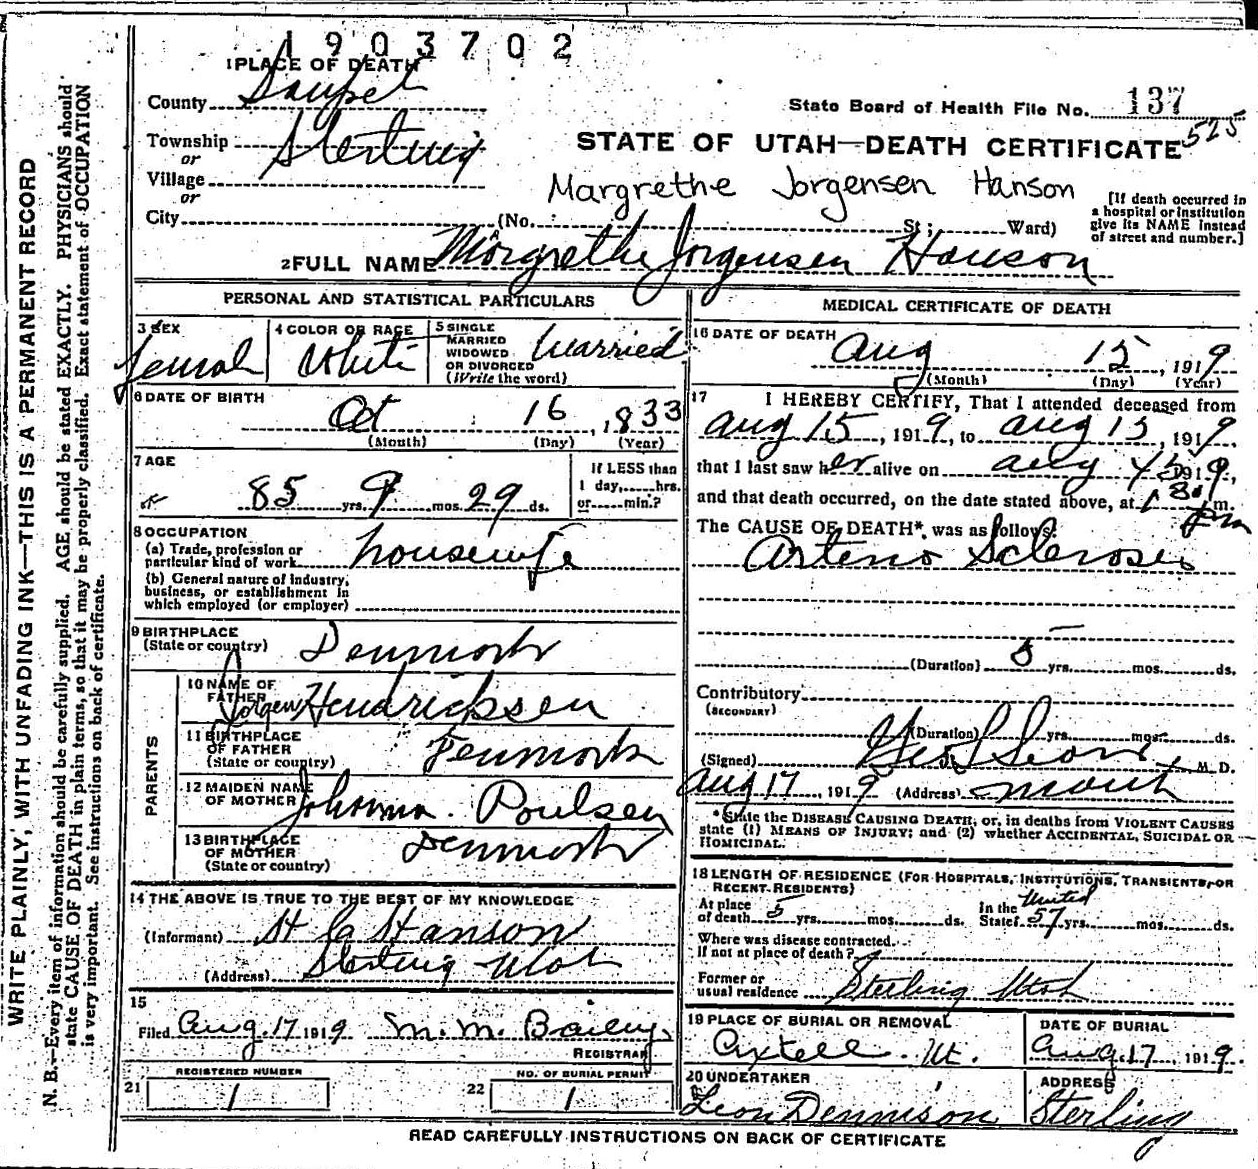 1903702
1 PLACE OF DEATH
County Sanpet
State Board of Health File No. 137
525
Township Sterling
or
STATE OF UTAH—DEATH CERTIFICATE
Village
or
Margrethe Jorgensen Hanson
City (No. St; Ward)
[If death occurred in a hospital or institution give its NAME instead of street and number.]
2 FULL NAME Margrethe Jorgensen Hanson
PERSONAL AND STATISTICAL PARTICULARS
3 SEX Femal
4 COLOR OR RACE White
5 SINGLE MARRIED WIDOWED OR DIVORCED (Write the word) Married
6 DATE OF BIRTH
Oct 16, 1833
(Month) (Day) (Year)
7 AGE
85 yrs. 9 mos. 29 ds.
If LESS than 1 day, hrs. or min.?
8 OCCUPATION
(a) Trade, profession or particular kind of work housewife
(b) General nature of industry, business, or establishment in which employed (or employer)
9 BIRTHPLACE
(State or country) Denmark
PARENTS
10 NAME OF FATHER Jorgen Hendricksen
11 BIRTHPLACE OF FATHER (State or country) Denmark
12 MAIDEN NAME OF MOTHER Johanna Poulsen
13 BIRTHPLACE OF MOTHER (State or country) Denmark
14 THE ABOVE IS TRUE TO THE BEST OF MY KNOWLEDGE
(Informant) H C Hanson
(Address) Sterling Utah
15
Filed Aug. 17 1919 M. M. Bailey
REGISTRAR
21 REGISTERED NUMBER 1
22 NO. OF BURIAL PERMIT 1
MEDICAL CERTIFICATE OF DEATH
16 DATE OF DEATH
Aug 15, 1919
(Month) (Day) (Year)
17 I HEREBY CERTIFY, That I attended deceased from
Aug 15, 1919, to Aug 15, 1919,
that I last saw her alive on Aug 15 1919,
and that death occurred, on the date stated above, at 1 30 m.
pm
The CAUSE OF DEATH*, was as follows:
Arterio Sclerosis
(Duration) 5 yrs. mos. ds.
Contributory
(SECONDARY)
(Duration) yrs. mos. ds.
(Signed) Geo L M. D.
Aug 17, 1919 (Address)
*State the DISEASE CAUSING DEATH, or, in deaths from VIOLENT CAUSES
state (1) MEANS OF INJURY; and (2) whether ACCIDENTAL, SUICIDAL OR
HOMICIDAL.
18 LENGTH OF RESIDENCE (FOR HOSPITALS, INSTITUTIONS, TRANSIENTS, OR
RECENT RESIDENTS)
At place of death 5 yrs. mos. ds. In the United State 57 yrs. mos. ds.
Where was disease contracted.
If not at place of death?
Former or usual residence Sterling Utah
19 PLACE OF BURIAL OR REMOVAL
Axtell. Ut.
DATE OF BURIAL
Aug. 17, 1919.
20 UNDERTAKER
Leon Dennison
ADDRESS
Sterling
READ CAREFULLY INSTRUCTIONS ON BACK OF CERTIFICATE
WRITE PLAINLY, WITH UNFADING INK—THIS IS A PERMANENT RECORD
N. B.—Every item of information should be carefully supplied. AGE should be stated EXACTLY. PHYSICIANS should
state CAUSE OF DEATH in plain terms, so that it may be properly classified. Exact statement of OCCUPATION
is very important. See instructions on back of certificate.